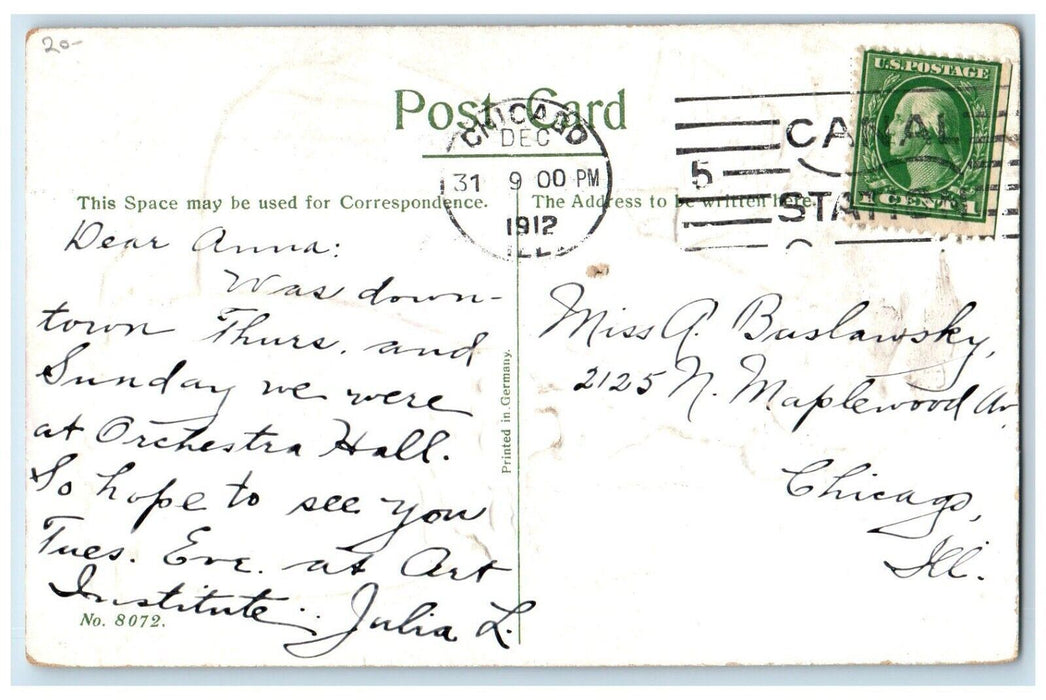 20-
Post Card
U.S. POSTAGE
1 CENT 1
CHICAGO
DEC
31 9 00 PM
1912
ILL
5
CANAL
STATION
This Space may be used for Correspondence.
The Address to be written here.
Dear Anna:
Was down-
town Thurs. and
Sunday we were
at Orchestra Hall.
So hope to see you
Tues. Eve. at Art
Institute. Julia L.
No. 8072.
Printed in Germany.
Miss A. Buslawsky,
2125 N. Maplewood Av.
Chicago,
Ill.